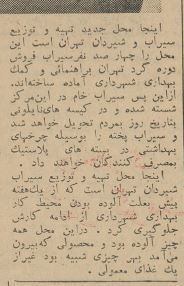 اینجا محل جدید تهیه و توزیع
سیراب و شیردان تهران است این
محل را چهار صد نفر سیراب فروش
دوره گرد تهران براهنمائی و کمك
بهداری شهرداری آماده ساخته‌اند.
از این پس سیراب خام در این مرکز
شسته شده و در کیسه های نایلونی
بتاریخ روز بمردم تحویل خواهد شد
و سیراب پخته را بوسیله چرخهای
بهداشتی در بسته های پلاستیك
بمصرف کنندگان خواهند داد .
اینجا محل تهیه و توزیع سیراب
شیردان تهران است که از یك هفته
پیش بعلت آلوده بودن محیط کار
بهداری شهرداری از ادامه کارش
جلوگیری کرد . در این محل همه
چیز آلوده بود و محصولی که بیرون
می‌آمد بهر چیزی شبیه بود غیر از
یك غذای معمولی .